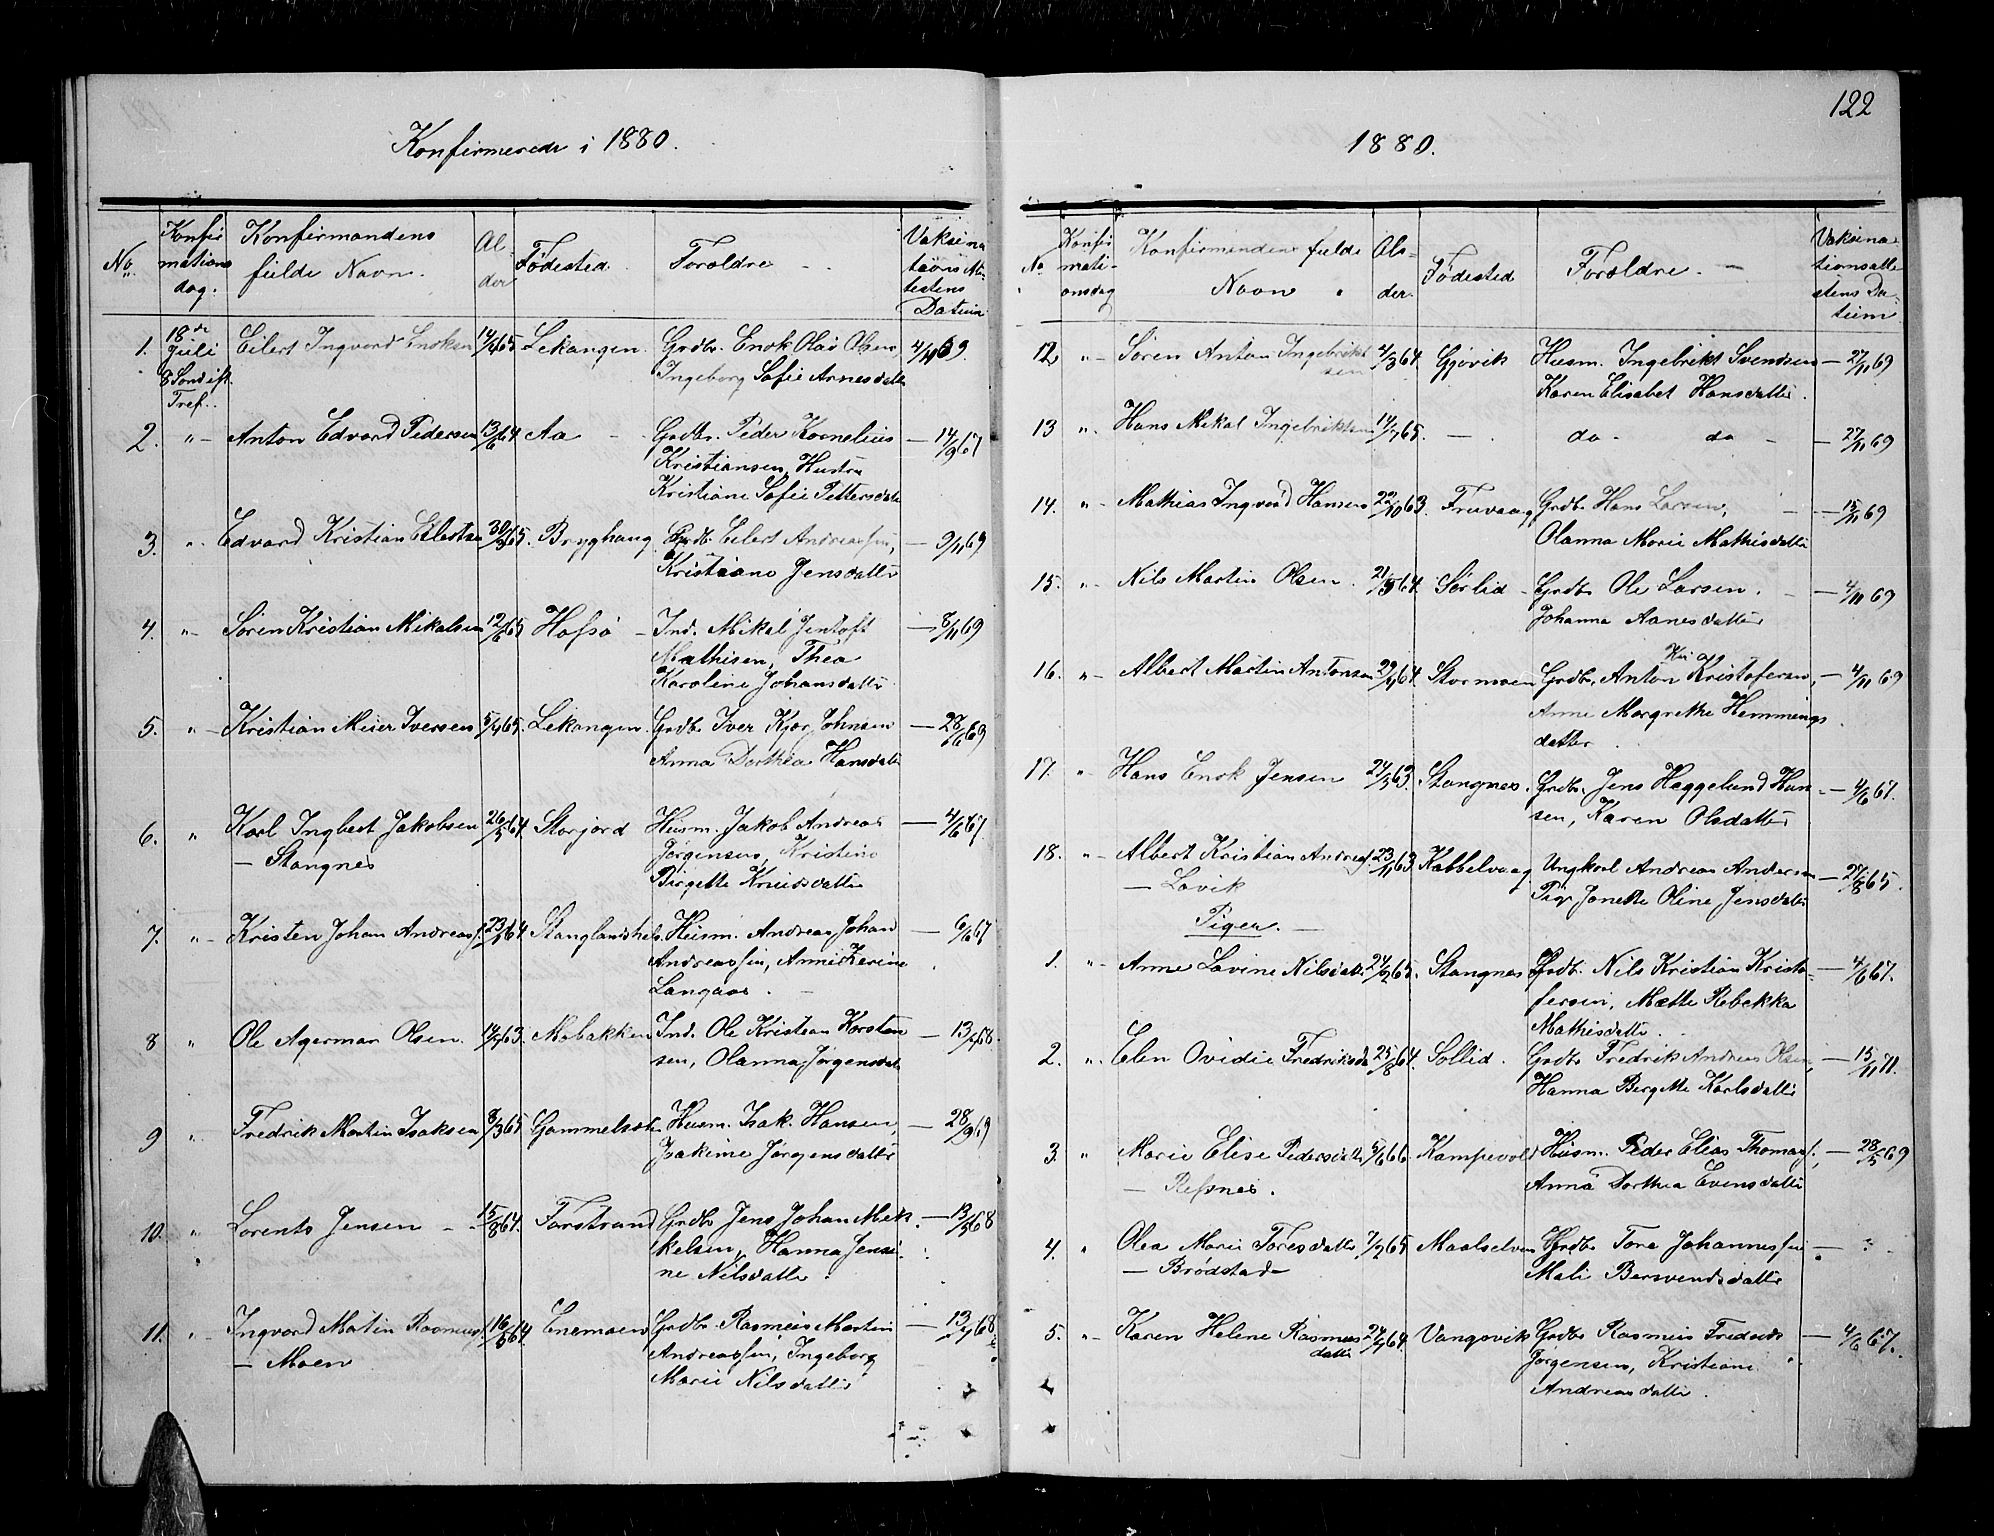 Konfirmerede i 1880.
No.
Konfir
mations
dag.
Konfirmandens
fulde Navn.
Al-
der
Fødested.
Forældre
Vaksina
tions At-
testens
Datum
1. 18de Juli 8 Sond eft. Tref. Eilert Ingvard Enoksen Lekangen. Grdbr. Enok Olai Olsen
Ingeborg Sofie Arnesdatter
2. " Anton Edvard Pedersen 13/6 64 Aa Grdbr. Peder Kornelius 14/9 67
Kristiansen, Hustru
Kristiane Sofie Pettersdatr
3. " Edvard Kristian Eilertsen 30/8 65. Bryghaug. Grdbr. Eilert Andreassen, 9/11 69
Kristiane Jensdatter
4. " Søren Kristian Mikalsen 12/6 65 Hofsø Ind. Mikal Jentoft 8/11 69
Mathisen, Thea
Karoline Johansdatter
5. " Kristian Meier Iversen Lekangen. Grdbr. Iver Kjær Johnsen 28/6 69
Anna Dorthea Hansdatr
6. " Karl Ingbert Jakobsen 26/5 64. Storjord Husm. Jakob Andreas 4/6 67
— Stangnes Jørgensen, Kristine
Birgette Knudsdatter
7. " Kristen Johan Andreass. Stanglandshels. Husm. Andreas Johan 6/6 67
Andreassen, Anne Karine
Langaas.
8 " Ole Agerman Olsen. Mobakken Ind. Ole Kristian Korsten
sen, Olanna Jørgensdatr
9 " Fredrik Martin Isaksen 8/3 65 Gammelsæter Husm. Isak Hansen, 28/9 69
Isakime Jørgensdatter
10. " Lorents Jensen 15/8 64. Forstrand Grdbr. Jens Johan Mik
kelsen, Hanna Jensi-
ne Nilsdatter
11. " Ingvard Martin Rasmuss. 16/5 64 Enemoen Grdbr. Rasmus Martin
— Moen Andreassen, Ingeborg
Marie Nilsdatter
122
1880.
No
Konfir
mati-
onsdag
Konfirmandens fulde
Navn
Al-
der.
Fødested
Forældre.
Vaksina-
tionsatte
stens Da-
tum
12 " Søren Anton Ingebrikt 4/3 64. Gjøvik Husm. Ingebrikt Svendsen 27/11 69
sen Karen Elisabet Hansdatter.
13 " Hans Mikal Ingebriktsen — do do 27/11 69
14. " Mathias Ingvard Hansen 22/10 63. Fruvaag Grdbr. Hans Larsen, 15/11 69
Olanna Marie Mathisdatter
15. " Nils Martin Olsen. 21/5 64. Sørlid Grdbr Ole Larsen. 4/11 69
Johanna Aanesdatter
16. " Albert Martin Antonsen Stormoen Grdbr. Anton Kristofersen, 4/11 69
Anne Margrethe Hemmings
datter.
17. " Hans Enok Jensen Stangnes. Grdbr. Jens Heggelund Han- 4/6 67.
sen, Karen Olsdatter
18. " Albert Kristian Andreass. 23/11 63 Kabbelvaag Ungkarl Andreas Andersen 27/8 65.
— Lavik Pige Janette Oline Jensdatter
Piger.
1. " Anne Lovine Nilsdatter 24/2 65. Stangnes Grdbr. Nils Kristian Kristo- 4/6 67.
fersen, Mætte Rebekka
Mathisdatter.
2. " Elen Ovidie Fredriksdr 25/8 64. Sollid. Grdbr Fredrik Andreas Olsen, 15/11 71.
Hanna Bergitte Karlsdatter
3. " Marie Elise Pedersdatter Kampevold Husm. Peder Elias Thomass., 28/5 69
— Refsnes. Anna Dorthea Evensdatter
4. " Olea Marie Toresdatter, 7/2 65 Maalselven Grdbr Tore Johannessen — ?
— Brødstad Mali Bersvendsdatter
5. " Karen Helene Rasmus Vangsvik Grdbr Rasmus Fredrik 4/6 67.
datter Jørgensen, Kristiane
Andreasdatter.